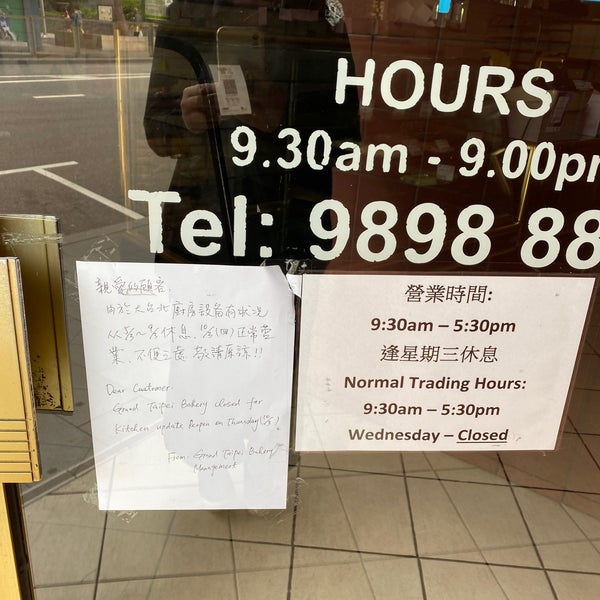 HOURS
9.30am - 9.00p
Tel: 9898 88
親愛的顧客,
由於大台北廚房設備有狀況
休息, (四)正常營
業, 不便之處 敬請原諒!!
Dear Customer.
Grand Taipei Bakery closed for
Kitchen update Reopen on Thursday
From Grand Taipei Bakery
Management
營業時間:
9:30am – 5:30pm
逢星期三休息
Normal Trading Hours:
9:30am – 5:30pm
Wednesday – Closed